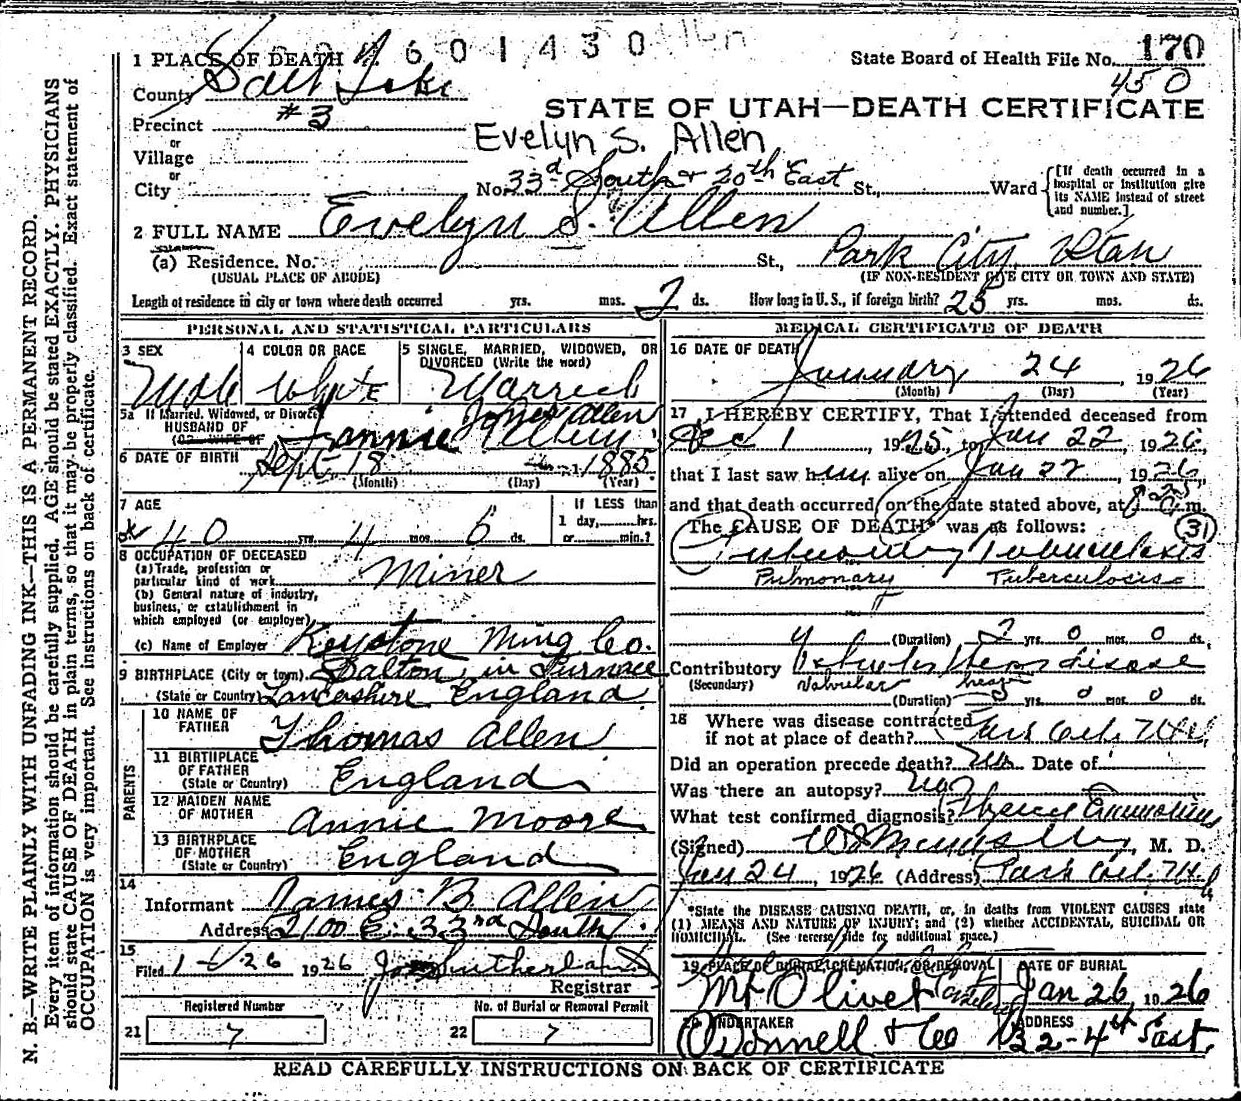 2601430 Allen
1 PLACE OF DEATH
State Board of Health File No. 170
County Salt Lake
450
STATE OF UTAH—DEATH CERTIFICATE
Precinct #3
Evelyn S. Allen
or
Village
or
City No. 33d South & 20th East St., Ward
[If death occurred in a
hospital or institution give
its NAME instead of street
and number.]
2 FULL NAME Evelyn S. Allen
(a) Residence. No. St., Park City Utah
(USUAL PLACE OF ABODE) (IF NON-RESIDENT GIVE CITY OR TOWN AND STATE)
Length of residence in city or town where death occurred yrs. mos. 2 ds. How long in U.S., if foreign birth? 25 yrs. mos. ds.
PERSONAL AND STATISTICAL PARTICULARS
3 SEX
Male
4 COLOR OR RACE
White
5 SINGLE, MARRIED, WIDOWED, OR
DIVORCED (Write the word)
Married
5a If Married, Widowed, or Divorced
HUSBAND OF
(OR WIFE OF
Jones Allen
Fannie Allen
6 DATE OF BIRTH Sept 18 1885
(Month) (Day) (Year)
7 AGE
40 yrs. 4 mos. 6 ds.
If LESS than
1 day, hrs.
or min.?
8 OCCUPATION OF DECEASED
(a) Trade, profession or
particular kind of work Miner
(b) General nature of industry,
business, or establishment in
which employed (or employer)
(c) Name of Employer Keystone Ming Co.
9 BIRTHPLACE (City or town) Dalton in Furnace
(State or Country) Lancashire England
PARENTS
10 NAME OF
FATHER Thomas Allen
11 BIRTHPLACE
OF FATHER
(State or Country) England
12 MAIDEN NAME
OF MOTHER Annie Moore
13 BIRTHPLACE
OF MOTHER
(State or Country) England
14
Informant James B. Allen
Address 2100 E. 33rd South
15
Filed 1-26 1926 Sutherland
Registrar
Registered Number
21 7
No. of Burial or Removal Permit
22 7
MEDICAL CERTIFICATE OF DEATH
16 DATE OF DEATH
January 24, 1926
(Month) (Day) (Year)
17 I HEREBY CERTIFY, That I attended deceased from
Dec 1 1925, to Jan 22 1926,
that I last saw him alive on Jan 22, 1926,
and that death occurred on the date stated above, at 8 m.
The CAUSE OF DEATH* was as follows: 31
Pulmonary Tuberculosis
Pulmonary Tuberculosis
(Duration) 2 yrs. 0 mos. 0 ds.
Contributory Valvular Heart disease
(Secondary) Valvular heart
(Duration) yrs. 0 mos. 0 ds.
18 Where was disease contracted
if not at place of death? Park City Utah
Did an operation precede death? no Date of
Was there an autopsy? no
What test confirmed diagnosis?
(Signed) M. D.
Jan 24, 1926 (Address) Park City, Utah
*State the DISEASE CAUSING DEATH, or, in deaths from VIOLENT CAUSES state
(1) MEANS AND NATURE OF INJURY; and (2) whether ACCIDENTAL, SUICIDAL OR
HOMICIDAL. (See reverse side for additional space.)
19 PLACE OF BURIAL, CREMATION, OR REMOVAL
Mt Olivet Cemetery
DATE OF BURIAL
Jan 26, 1926
20 UNDERTAKER
O'Donnell & Co
ADDRESS
32-4th East.
READ CAREFULLY INSTRUCTIONS ON BACK OF CERTIFICATE
N. B.—WRITE PLAINLY WITH UNFADING INK—THIS IS A PERMANENT RECORD.
Every item of information should be carefully supplied. AGE should be stated EXACTLY. PHYSICIANS
should state CAUSE OF DEATH in plain terms, so that it may be properly classified. Exact statement of
OCCUPATION is very important. See instructions on back of certificate.